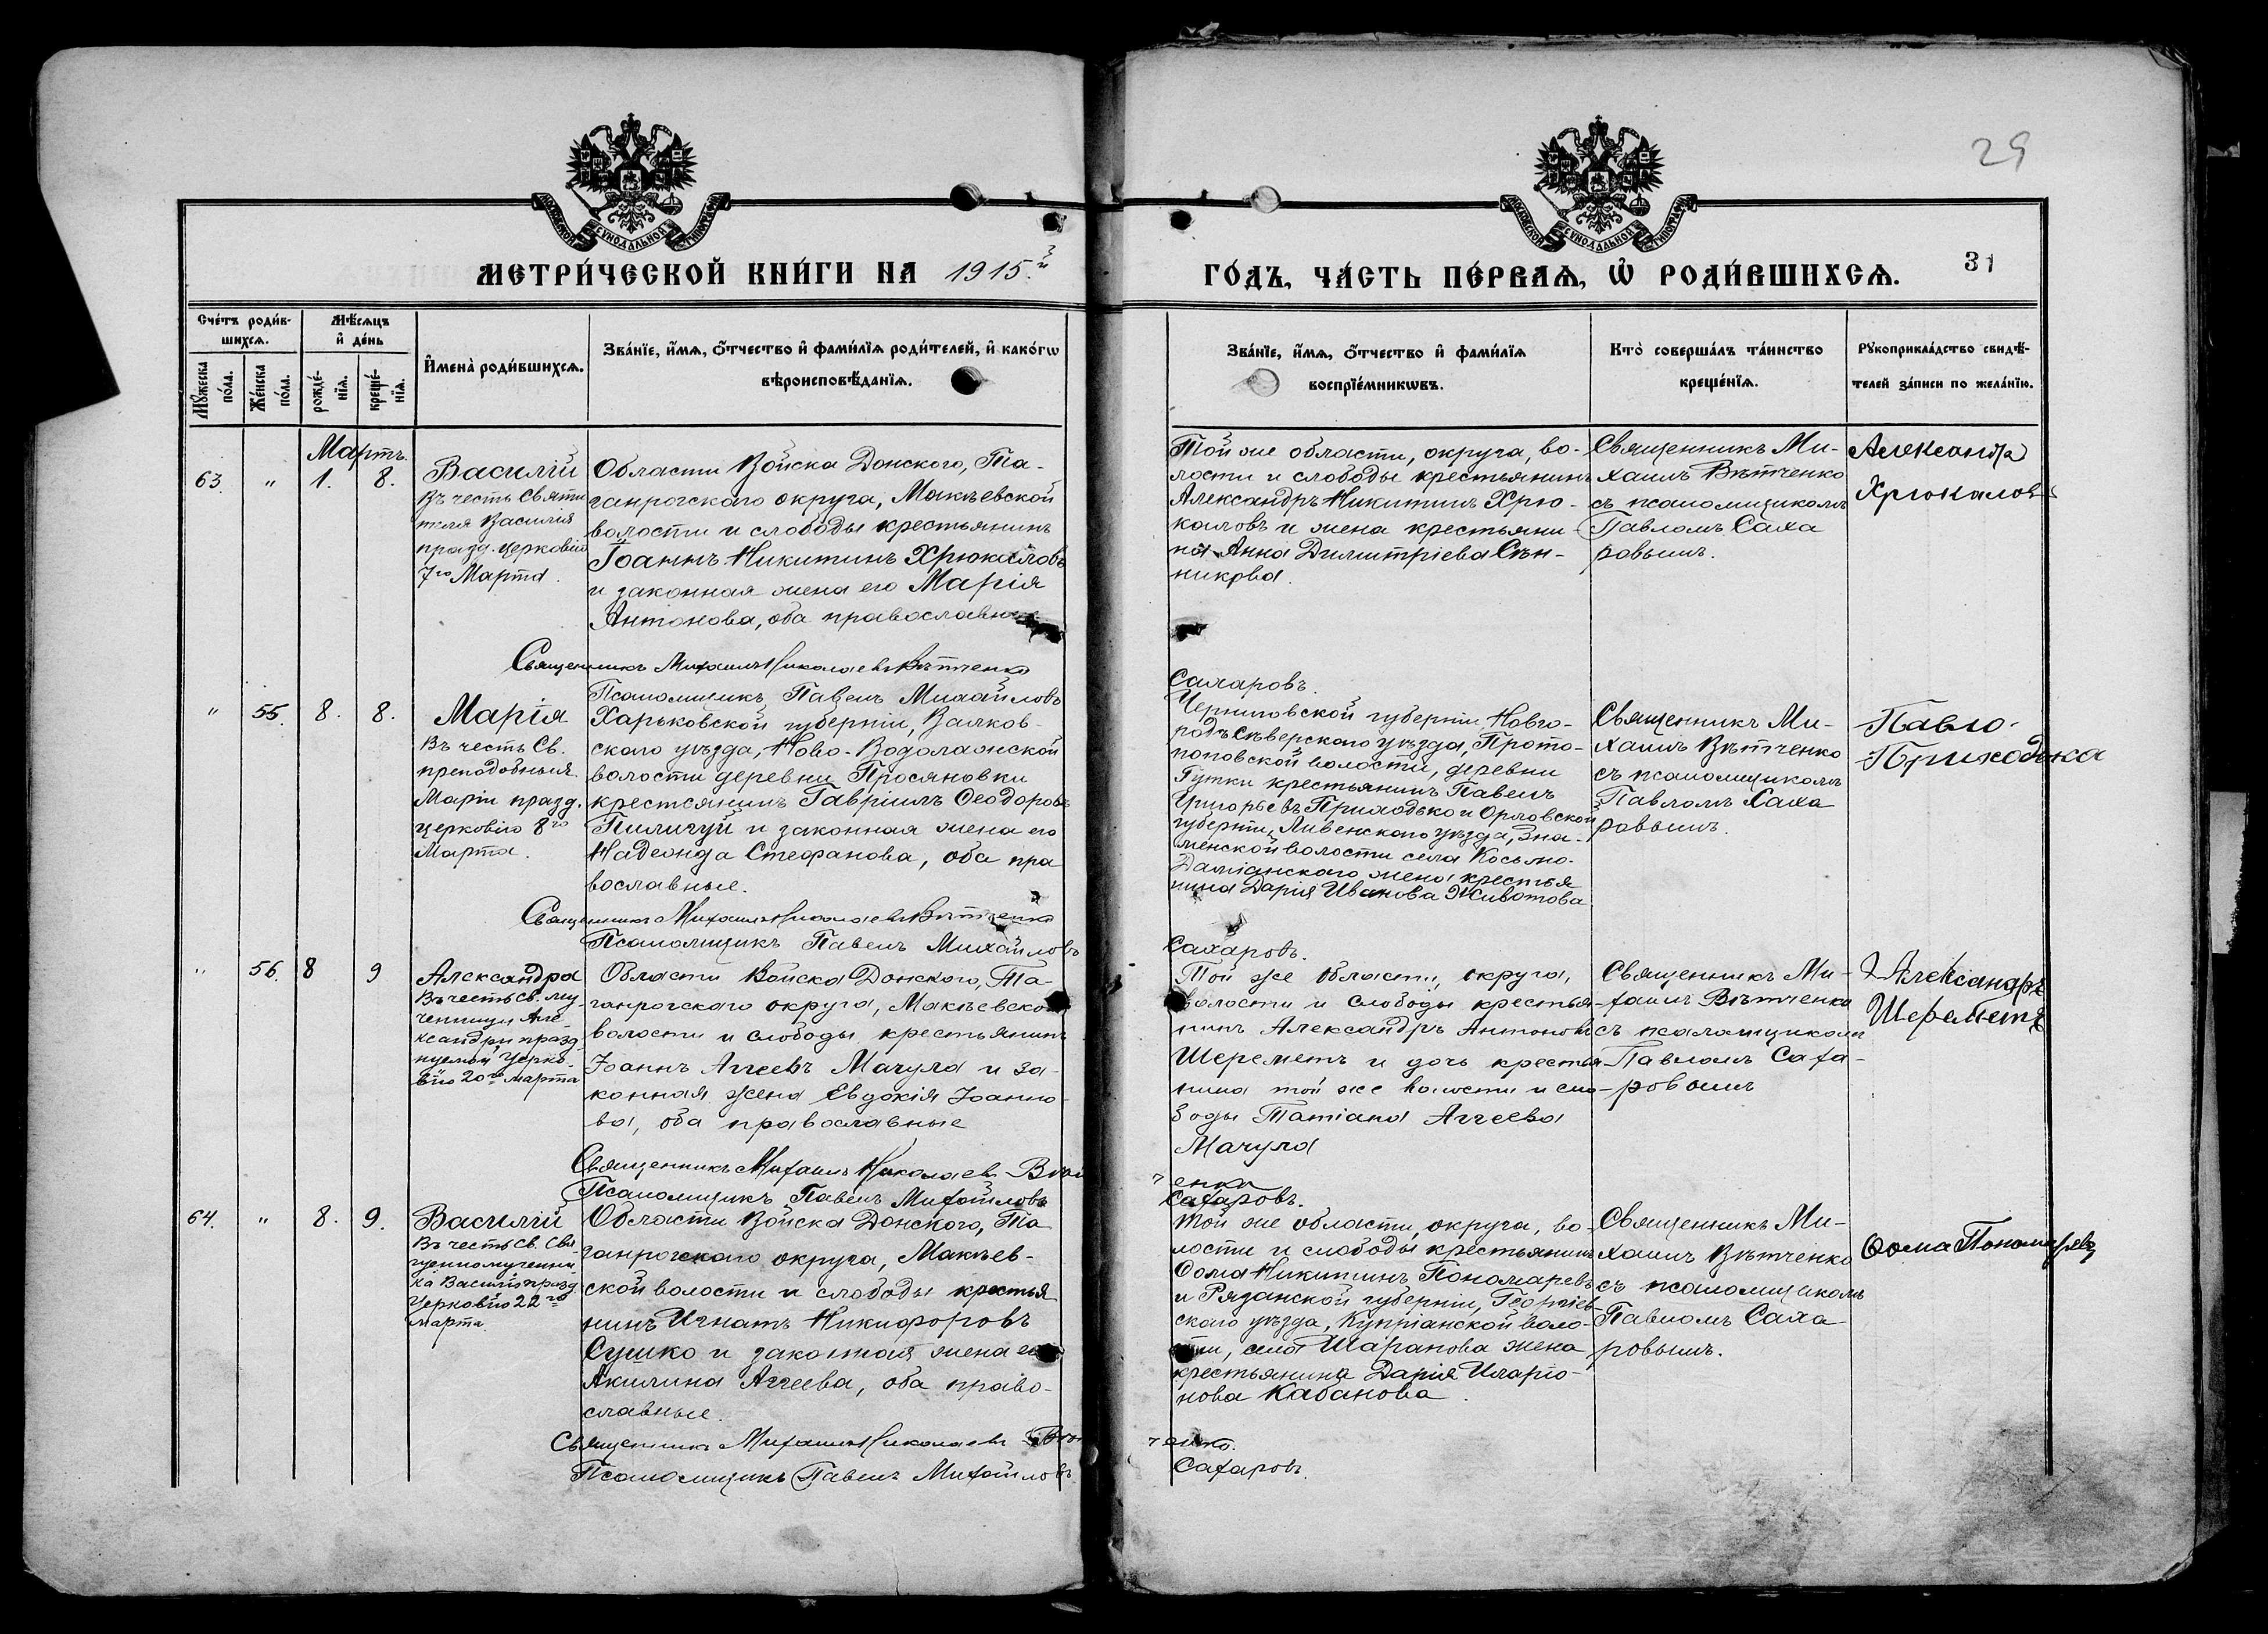 29
МЕТРИ́ЧЕСКОЙ КНИ́ГИ НА 1915й
ГО́ДЪ, ЧА́СТЬ ПЕ́РВАѦ, Ѡ҆ РОДИ́ВШИХСѦ.
31
Сче́тъ роди́в-
шихсѧ.
Мѣ́сѧцъ
и҆ де́нь
Мꙋ́жеска по́ла.
Же́нска по́ла.
рожде́-
нїѧ.
креще́-
нїѧ.
И҆мена̀ роди́вшихсѧ.
Зва́нїе, и҆́мѧ, ѻ҆́тчество и҆ фами́лїѧ роди́телей, и҆ како́гѡ
вѣроисповѣ́данїѧ.
Зва́нїе, и҆́мѧ, ѻ҆́тчество и҆ фами́лїѧ
воспрїе́мникѡвъ.
Кто̀ соверша́лъ та́инство
креще́нїѧ.
Рꙋкоприкла́дство свидѣ́-
телей за́писи по жела́нїю.
Мартъ.
63. " 1. 8.
Василій
Въ честь Святи
теля Василія
празд. церковію
7го Марта.
Области Войска Донского, Та-
ганрогскаго округа, Макѣевской
волости и слободы крестьянинъ
Іоаннъ Никитинъ Хрюкаловъ
и законная жена его Марія
Антонова, оба православные
Священникъ Михаилъ Николаевъ Вѣтченко
Псаломщикъ Павелъ Михайловъ
Той же области, округа, во-
лости и слободы крестьянинъ
Александръ Никитинъ Хрю-
каловъ и жена крестьяни
на Анна Димитріева Сѣн-
никова.
Сахаровъ.
Священникъ Ми-
хаилъ Вѣтченко
съ псаломщикомъ
Павломъ Саха
ровымъ.
Александръ
Хрюкаловъ
" 55. 8. 8.
Марія
Въ честь Св.
преподобныя
Маріи празд.
церковію 8го
Марта.
Харьковской губерніи, Валков-
скаго уѣзда, Ново-Водолажской
волости деревни Просяновки
крестьянинъ Гавріилъ Ѳеодоровъ
Пилигуй и законная жена его
Надежда Стефанова, оба пра
вославные.
Священникъ Михаилъ Николаевъ Вѣтченко
Псаломщикъ Павелъ Михайловъ
Черниговской губерніи Новго-
родъ Сѣверскаго уѣзда, Прото-
поповской волости, деревни
Гутки крестьянинъ Павелъ
Григорьевъ Приходько и Орловской
губерніи, Ливенскаго уѣзда, Зна-
менской волости села Косьмо-
Даміанскаго жена крестья
нина Дарія Иванова Животова
Сахаровъ.
Священникъ Ми-
хаилъ Вѣтченко
съ псаломщикомъ
Павломъ Саха
ровымъ.
Павло
Приходжка
" 56. 8 9
Александра
Въ честь Св. му-
ченицы Але-
ксандры празд-
нуемой Церко-
вію 20го марта
Области Войска Донского, Та-
ганрогскаго округа, Макѣевской
волости и слободы крестьянинъ
Іоаннъ Аггеевъ Мачула и за-
конная жена Евдокія Іоанно-
ва, оба православные
Священникъ Михаилъ Николаевъ Вѣт
Псаломщикъ Павелъ Михайловъ
Той же области, округа,
волости и слободы крестья-
нинъ Александръ Антоновъ
Шереметъ и дочь крестья-
нина той же волости и сло-
боды Татіана Аггеева
Мачула
ченко
Сахаровъ.
Священникъ Ми-
хаилъ Вѣтченко
съ псаломщикомъ
Павломъ Саха-
ровымъ
Александръ
Шереметъ
64. " 8. 9.
Василій
Въ честь Св. Свя-
щенномученни
ка Василія празд.
Церковію 22го
марта.
Области Войска Донского, Та
ганрогскаго округа, Макѣев-
ской волости и слободы крестья
нинъ Игнатъ Никифоровъ
Сушко и законная жена его
Акилина Аггеева, оба право-
славные.
Священникъ Михаилъ Николаевъ Вѣт
Псаломщикъ Павелъ Михайловъ
Той же области, округа, во-
лости и слободы крестьянинъ
Ѳома Никитинъ Пономаревъ
и Рязанской губерніи, Георгіев-
скаго уѣзда, Купріанской воло-
сти, села Шаранова жена
крестьянина Дарія Иларіо-
нова Кабанова.
ченко.
Сахаровъ.
Священникъ Ми-
хаилъ Вѣтченко
съ псаломщикомъ
Павломъ Саха-
ровымъ.
Ѳома Пономаревъ